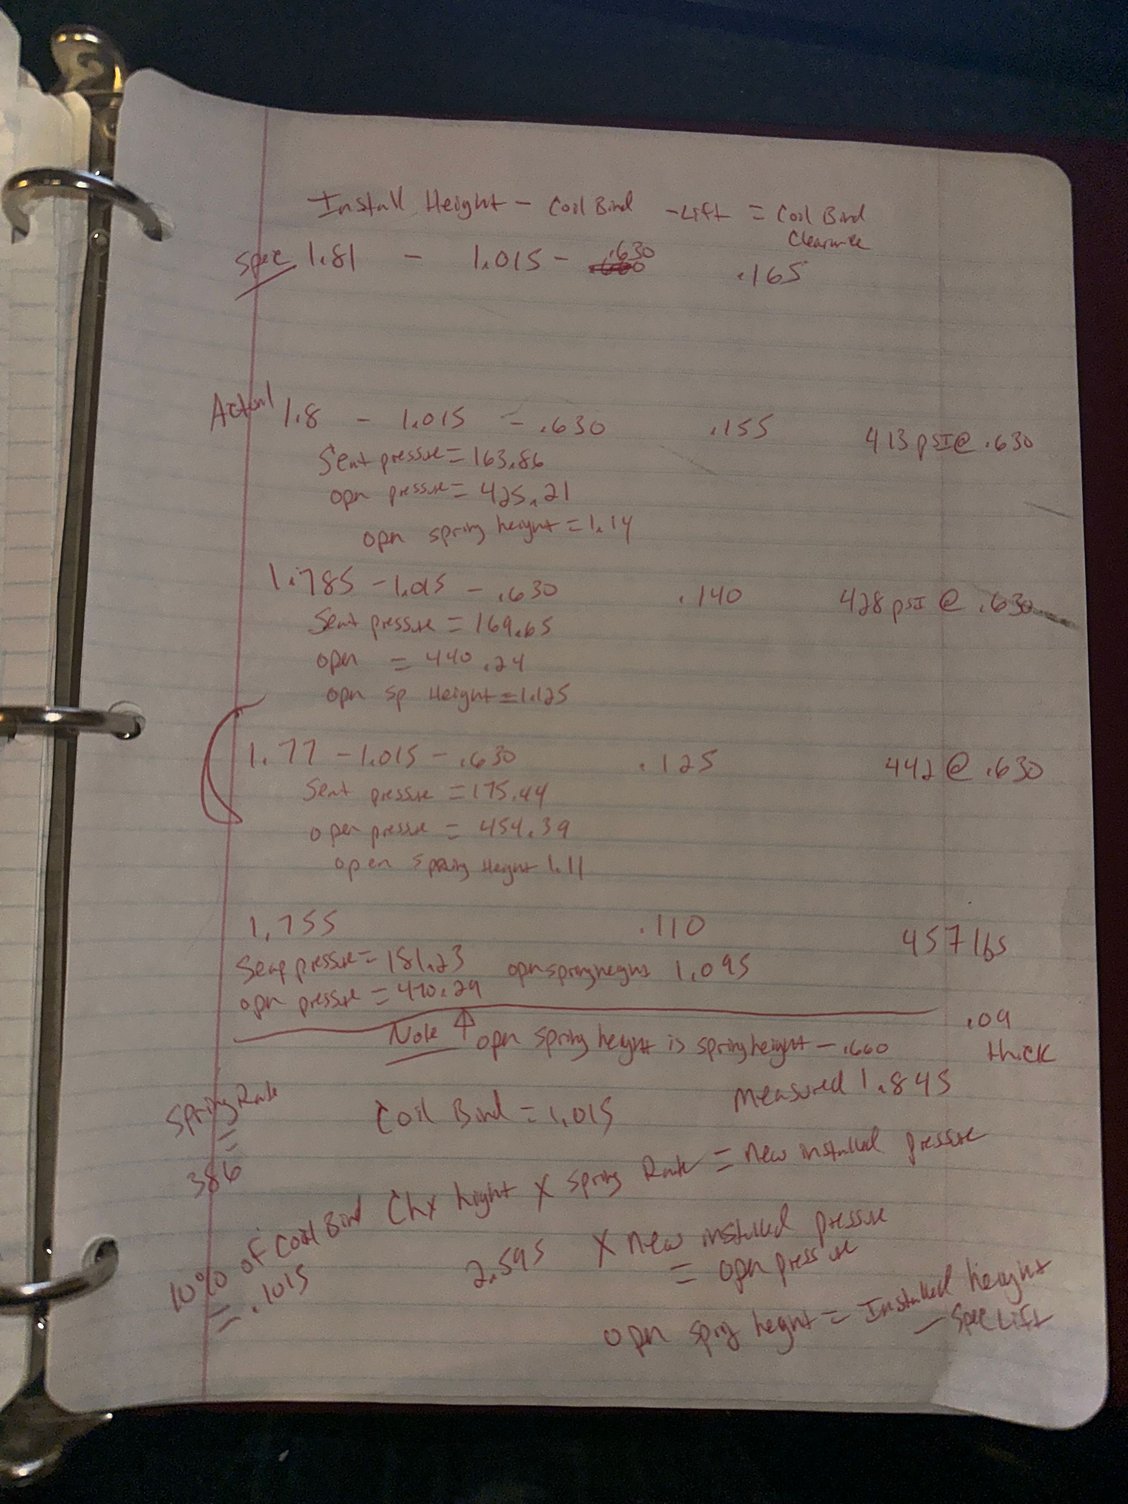 Install Height - Coil Bind - Lift = Coil Bind Clearance
Spec 1.81 - 1.015 - .630 .165
Actual 1.8 - 1.015 - .630 .155 413 psi @ .630
Seat pressure = 163.86
opn pressure = 425.21
opn spring height = 1.14
1.785 - 1.015 - .630 .140 428 psi @ .630
Seat pressure = 169.65
open = 440.24
opn sp Height = 1.125
1.77 - 1.015 - .630 .125 442 @ .630
Seat pressure = 175.44
open pressure = 454.39
open spring Height 1.11
1.755 .110 457 lbs
Seat pressure = 181.23 opn spring height 1.095
opn pressure = 470.29
Note ↑ opn spring height is spring height - .660 .09 thick
Spring Rate = 386
Coil Bind = 1.015 measured 1.845
Chx hight X spring Rate = new installed pressure
10% of Coil Bind = .1015
2.595 X new installed pressure
= open pressure
opn spring height = Installed height
- Spec Lift